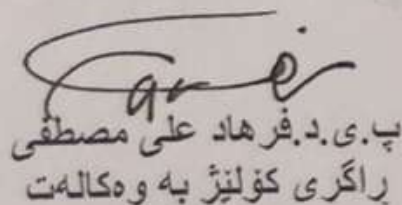 پ.ی.د.فرهاد علی مصطفی
ڕاگری کۆلێژ بە وەکالەت